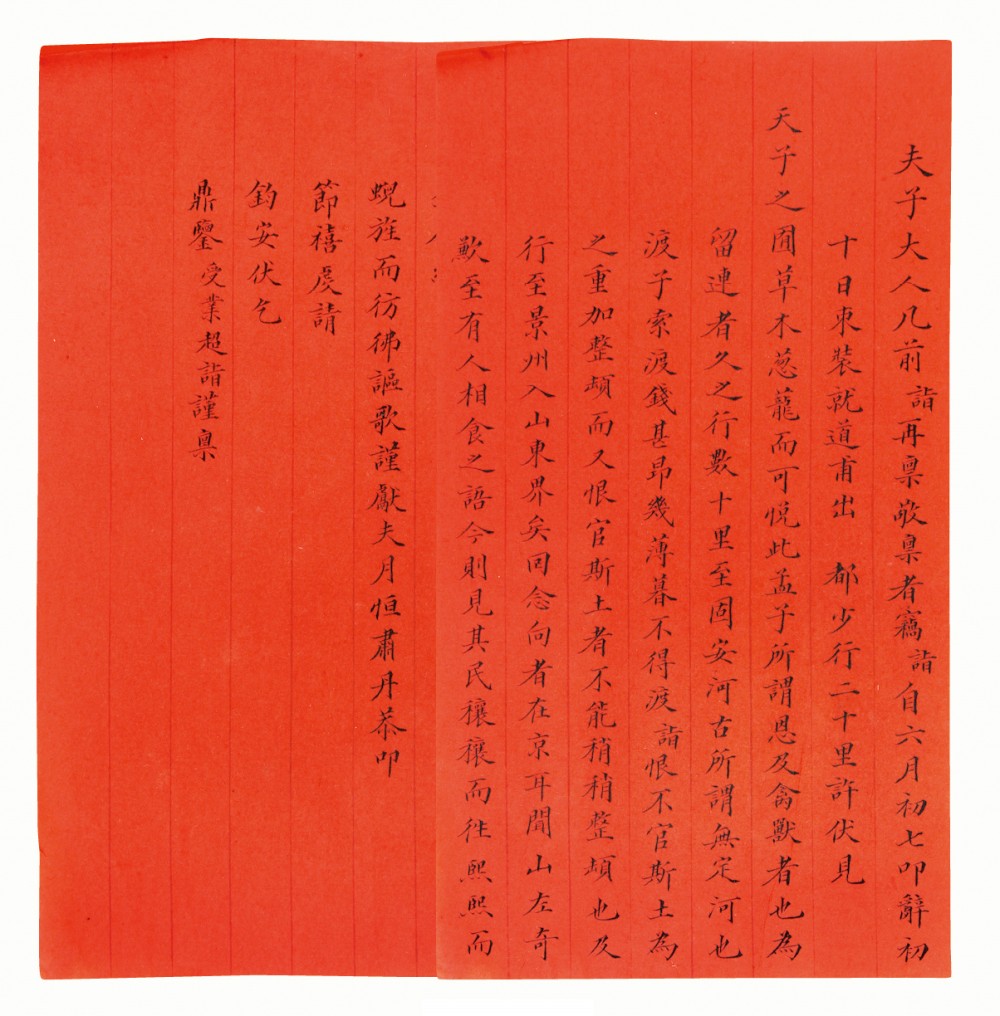 夫子大人几前詣再稟敬稟者竊詣自六月初七叩辭初
十日束裝就道甫出 都少行二十里許伏見
天子之囿草木葱蘢而可悅此孟子所謂恩及禽獸者也為
留連者久之行數十里至固安河古所謂無定河也
渡子索渡錢甚昂幾薄暮不得渡詣恨不官斯土為
之重加整頓而又恨官斯土者不能稍稍整頓也及
行至景州入山東界矣回念向者在京耳聞山左奇
歉至有人相食之語今則見其民穰穰而往熙熙而
蜺旌而彷彿謳歌謹獻夫月恒肅丹恭叩
節禧虔請
鈞安伏乞
鼎鑒受業超詣謹稟